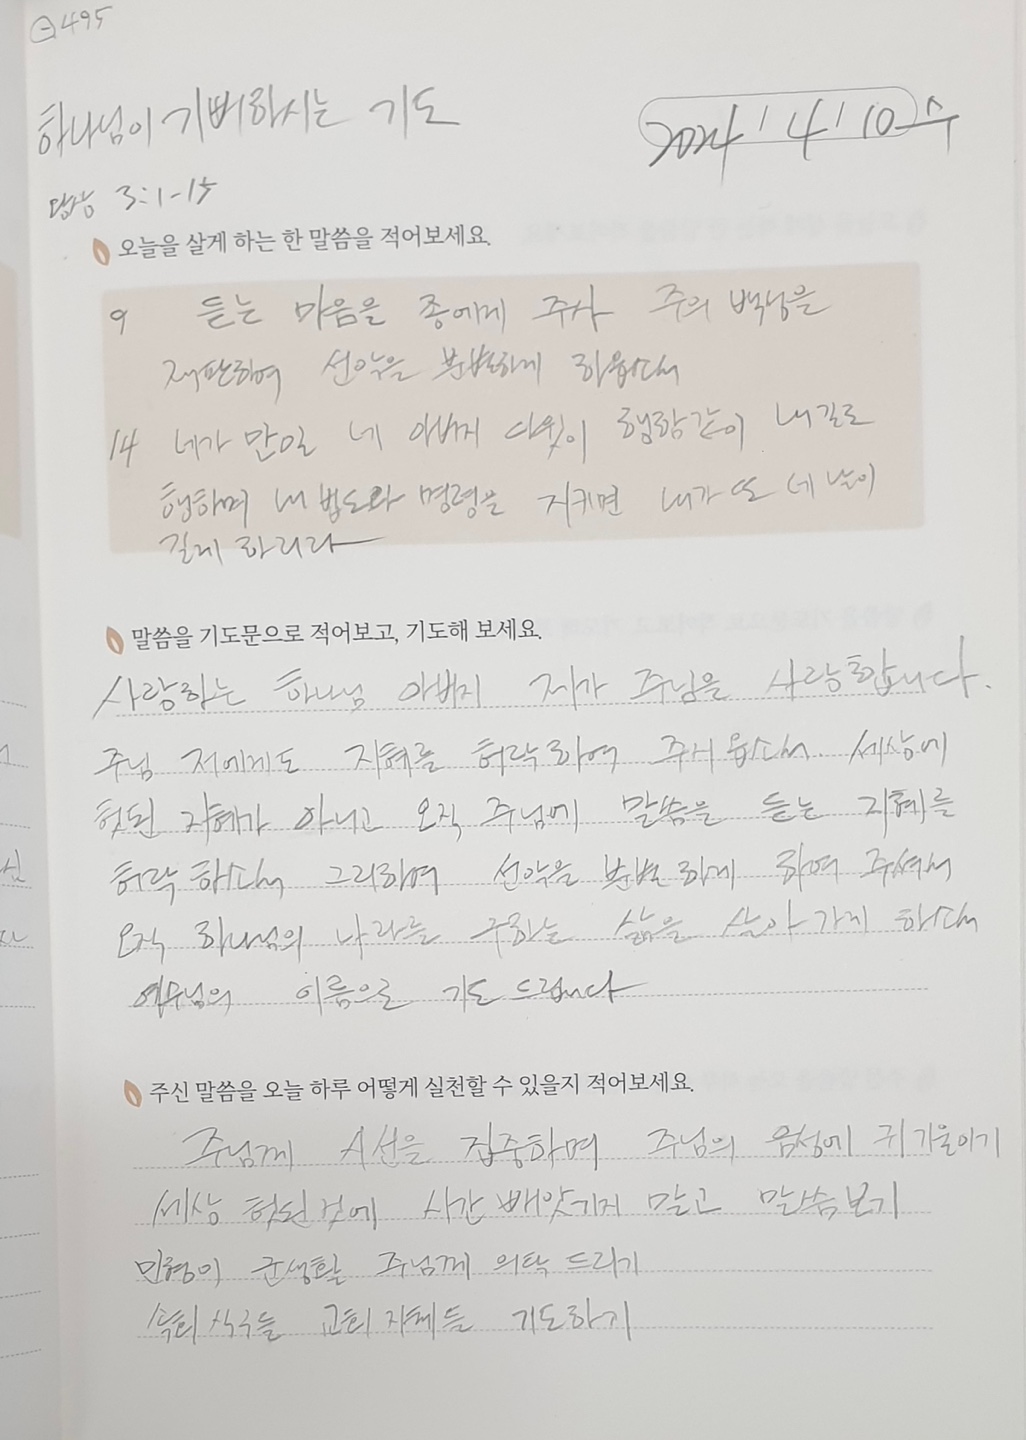 ㊀495
하나님이 기뻐하시는 기도
2024 / 4 / 10 수
3:1-15
오늘을 살게 하는 한 말씀을 적어보세요.
9 듣는 마음을 종에게 주사 주의 백성을
재판하여 선악을 분별하게 하옵소서
14 네가 만일 네 아버지 다윗이 행함같이 내 길로
행하며 내 법도와 명령을 지키면 내가 또 네 날이
길게 하리라
말씀을 기도문으로 적어보고, 기도해 보세요.
사랑하는 하나님 아버지 제가 주님을 사랑합니다.
주님 저에게도 지혜를 허락하여 주시옵소서. 세상에
헛된 지혜가 아니고 오직 주님에 말씀을 듣는 지혜를
허락하소서 그리하여 선악을 분별하게 하여 주셔서
오직 하나님의 나라를 구하는 삶을 살아가게 하소서
예수님의 이름으로 기도드립니다
주신 말씀을 오늘 하루 어떻게 실천할 수 있을지 적어보세요.
주님께 시선을 집중하며 주님의 음성에 귀 기울이기
세상 헛된것에 시간 빼앗기지 말고 말씀보기
민형이 군생활 주님께 의탁 드리기
속회식구들 교회 지체들 기도하기